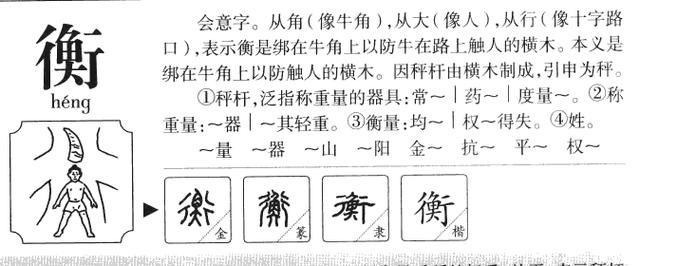 衡
héng
会意字。从角(像牛角),从大(像人),从行(像十字路
口),表示衡是绑在牛角上以防牛在路上触人的横木。本义是
绑在牛角上以防触人的横木。因秤杆由横木制成,引申为秤。
①秤杆,泛指称重量的器具:常~|药~|度量~。②称
重量:~器|~其轻重。③衡量:均~|权~得失。④姓。
~量 ~器 ~山 ~阳 金~ 抗~ 平~ 权~
衡 金 衡 篆 衡 隶 衡 楷